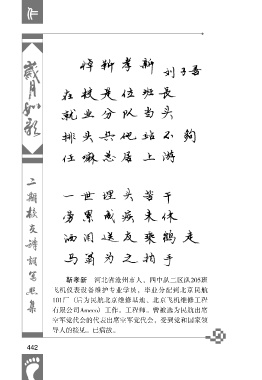 作
岁月如歌
二期校友诗词写照集
悼靳孝新
刘子善
在校是位班长
就业分队当头
排头兵他站不够
任嘛总居上游
一世埋头苦干
劳累成疾未休
洒泪送友乘鹤走
马菊为之拍手
靳孝新 河北省沧州市人，四中队二区队205班
飞机仪表设备维护专业学员，毕业分配到北京民航
101厂（后为民航北京维修基地、北京飞机维修工程
有限公司Ameco）工作。工程师。曾被选为民航出席
空军党代会的代表出席空军党代会，受到党和国家领
导人的接见。已病故。
442